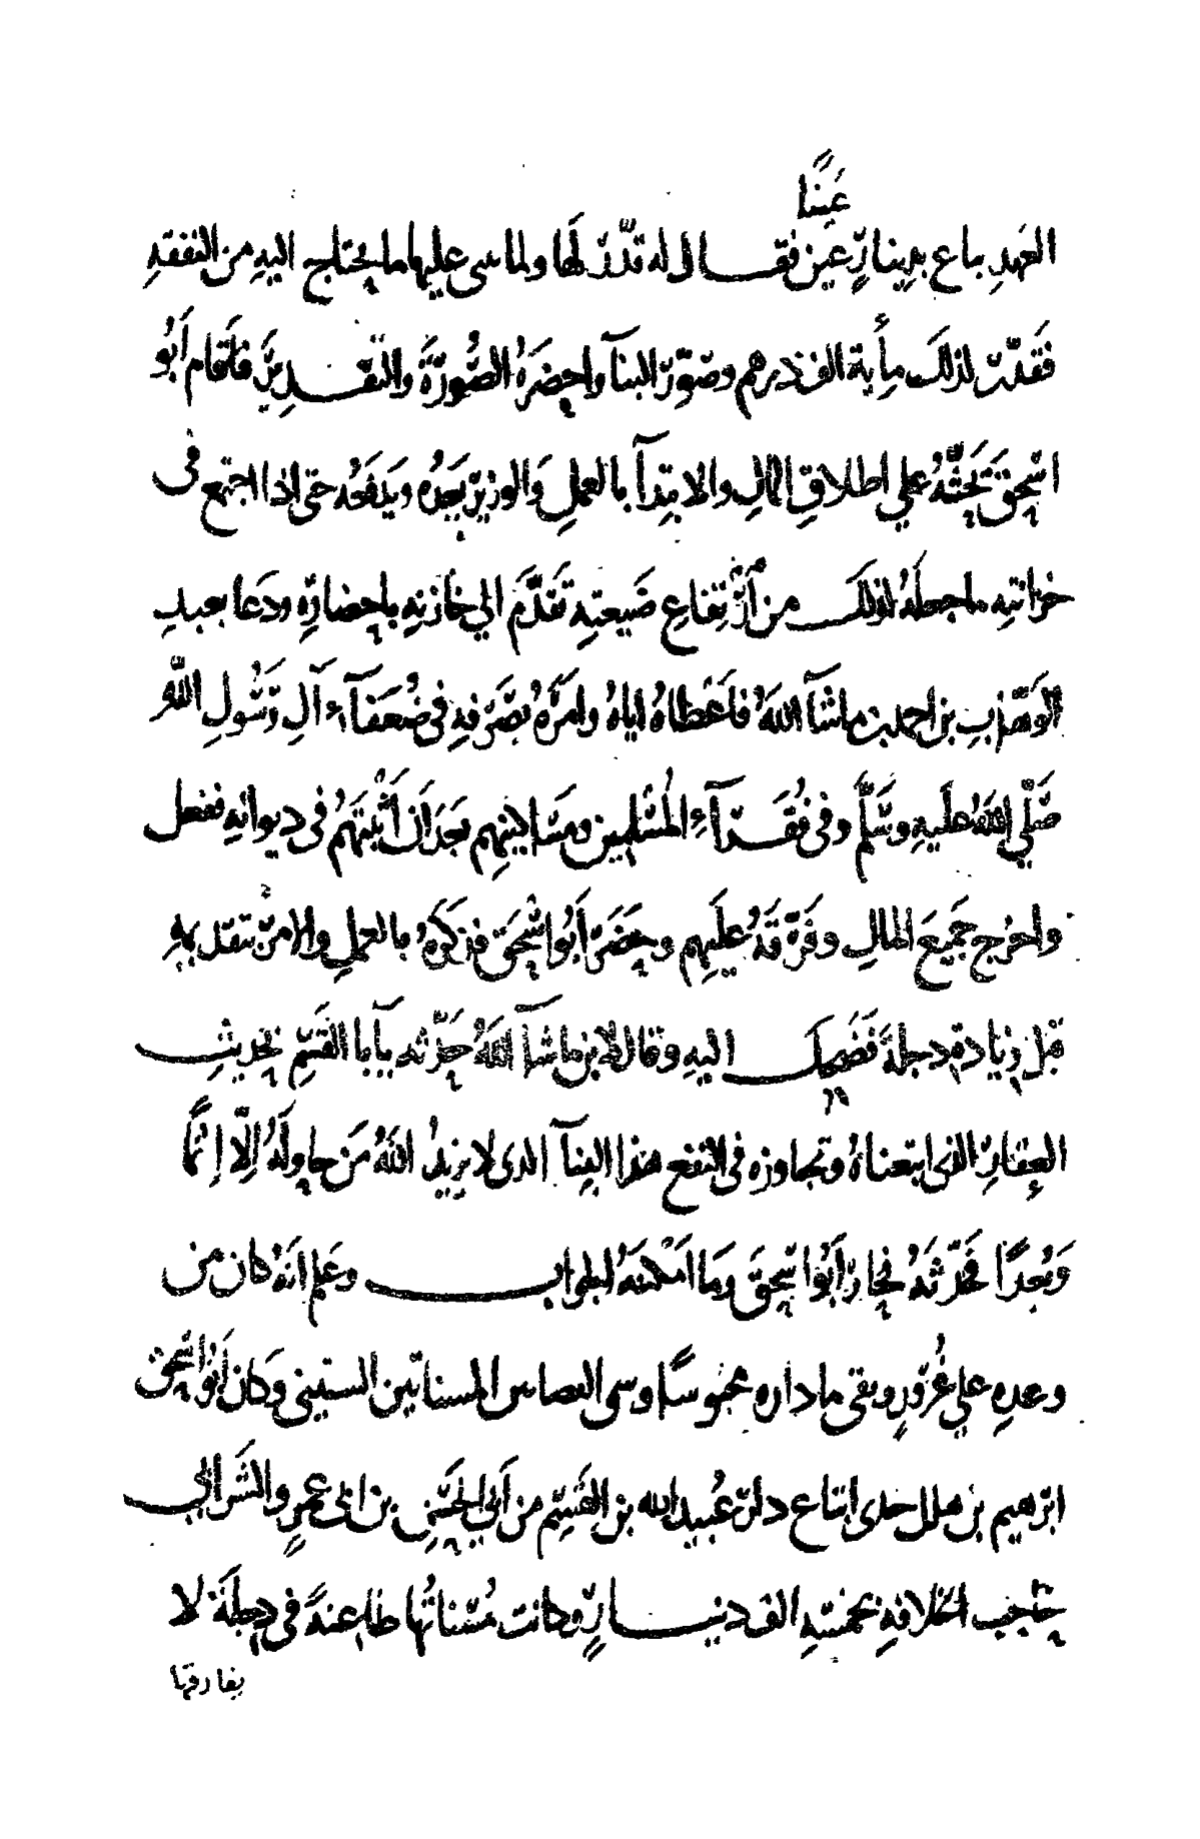 عَينًا
العَهدِ باع بدينارٍ عين فقال له قدّر لها ولما بنى عليها ما يحتاج اليهِ من النفقةِ
فَقَدّر لذلكَ مأية الف درهم وصَوّر البنآ واحضَرَهُ الصُّورَةَ والتقديرَ فاَقام أَبُو
اسحٰقَ يَحثُّهُ على اطلاقِ المالِ والابتدآ بالعملِ وَالوزير يَعِدُه ويَدفَعُه حتى اذا اجتمع فى
خزانتِه ما جعلَهُ لذلكَ من اَرتفاعِ ضَيعتِهِ تَقدَّمَ الي خَازنِهِ باحضارِهِ ودَعا بعبدِ
الوَهّابِ بن احمد بن ماشآ اللّهُ فاَعْطاهُ اياهُ وامَرَهُ بصَرفهِ فى ضُعَفآءِ آلِ رَسُولِ اللّهِ
صَلّي اللّهُ علَيهِ وسَلَّم وفى فُقَرآءِ المُسْلمين ومسَاكينِهِم بَعدَ اَن اَثْبَتَهُم فى ديوانهِ ففعل
واخرج جَميعَ المالِ وفَرّقَهُ عليَهِم وحَضَرَ أَبُو اسْحٰقَ فذكَرهُ بالعملِ والامر بتقديمهِ
قبل زيادة دجلةَ فَضَحِكَ اليهِ وقال لابن ماشآ اللّهُ حَدِّثه يآبا القَسِم بحَديثِ
العِقارِ الذى ابتعناهُ وتجاوزه فى النفع هذا البِنآ الذى لا يزيدُ اللّهُ مَن حاولَهُ اِلّا اِثمًا
وَبُعدًا فحَدّثَهُ فحَارَ أَبُو اسْحٰقَ ومَا امْكَنَهُ الجواب وعَلم انّهُ كان من
وعدِهِ علي غُرُورٍ وبقى ما داره محبُوسًا وسى العصاس المسناتين الستينى وَكان أَبُو اسْحٰق
ابرهيم بن هلال جدى ابتاع دار عُبيد الله بن القَسِم من أَبي الحَسَن بن ابى عمرٍو الشَرابي
حَاجب الخلافةِ بخمسةِ الف دينارٍ وكانت مُسَناتُها طاعِنةً فى دجلَةَ لا
يفارقها